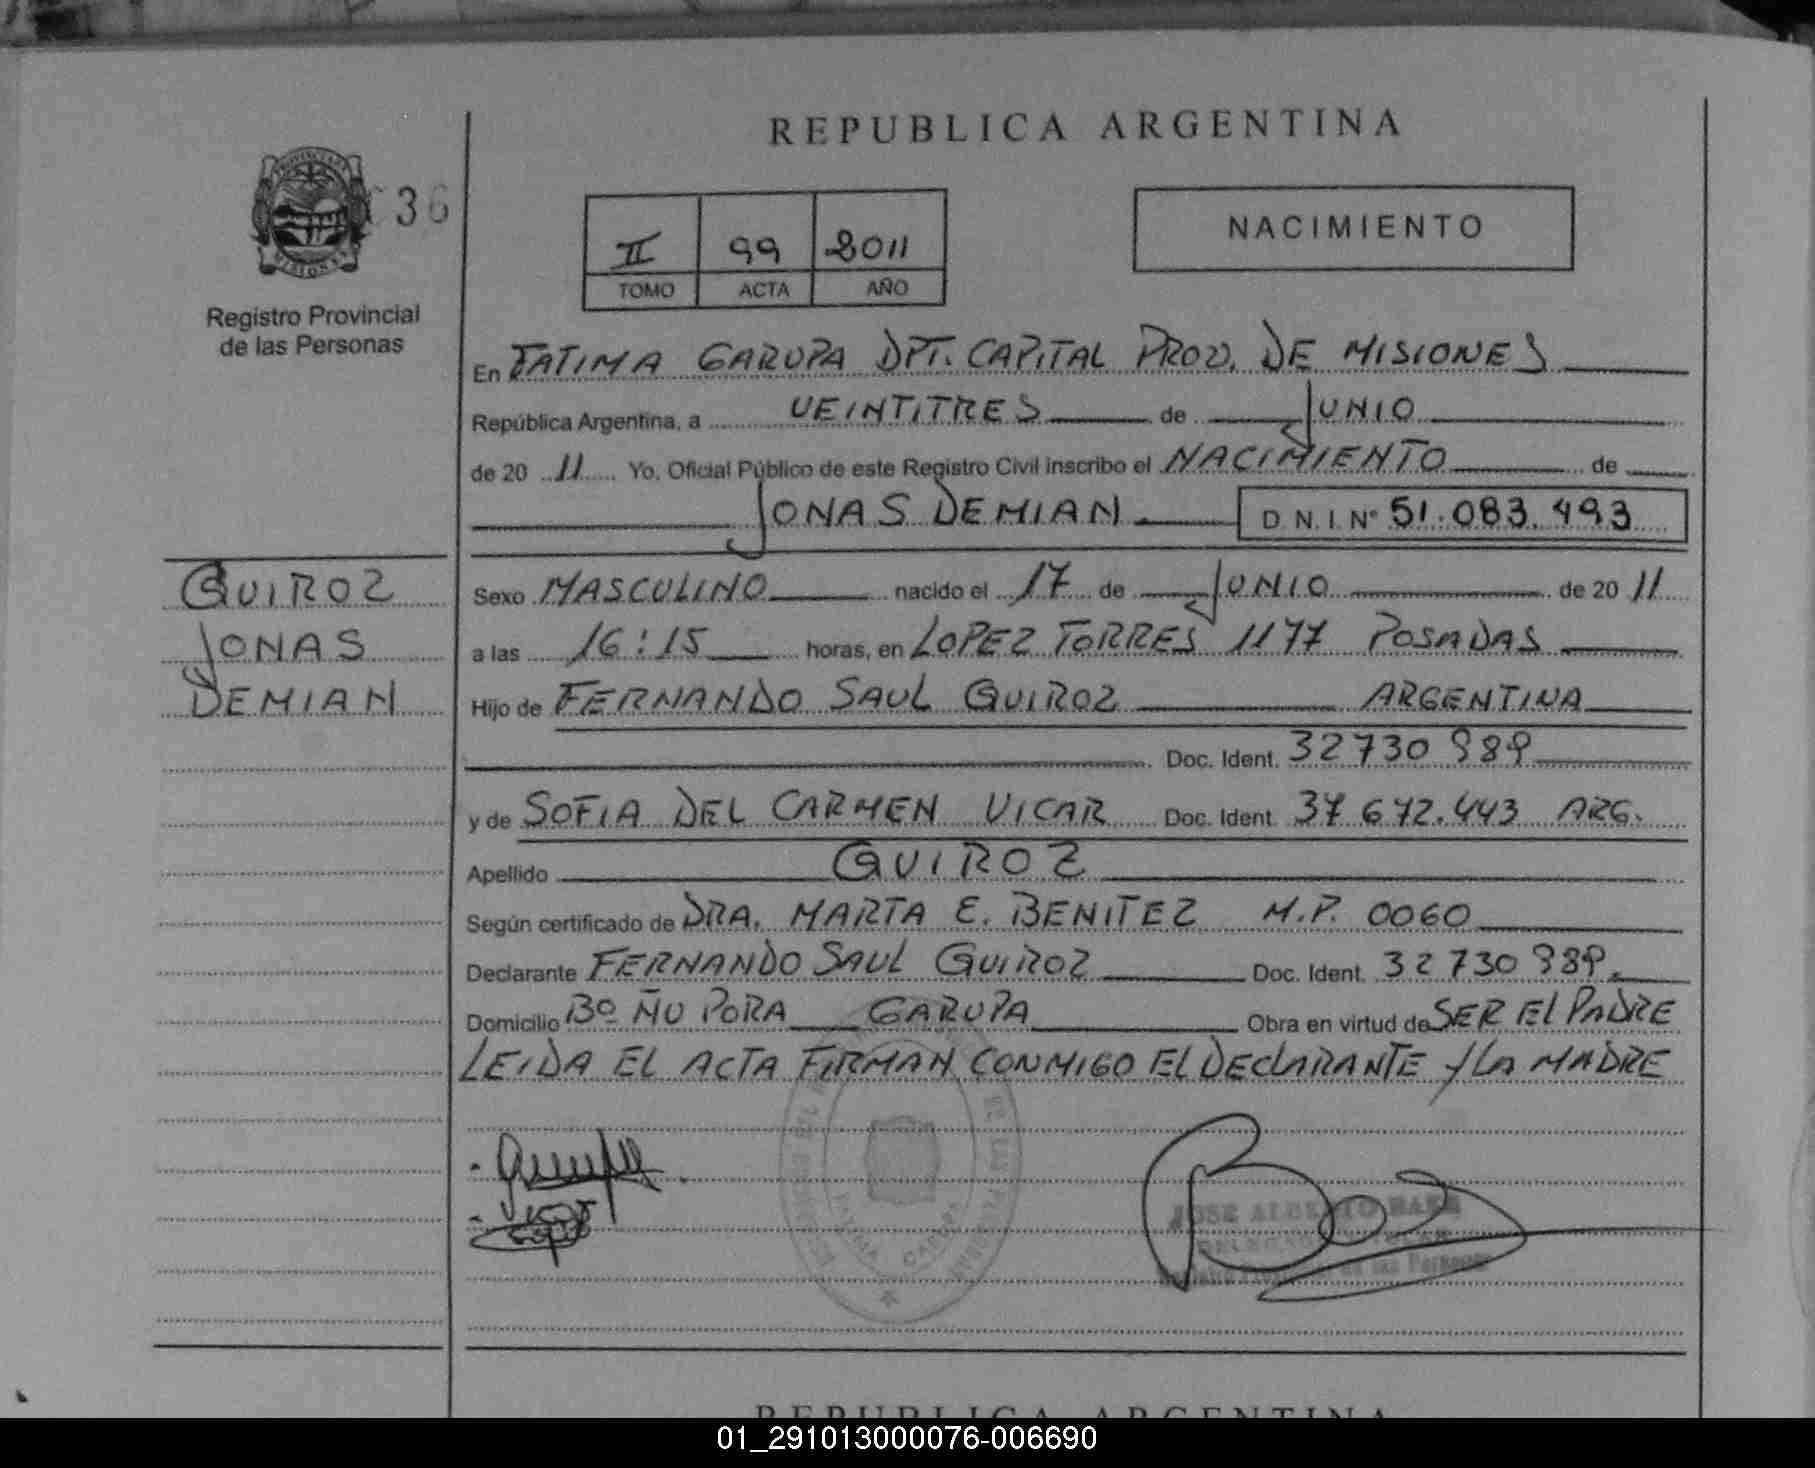 REPUBLICA ARGENTINA
36
II 99 2011
TOMO ACTA AÑO
NACIMIENTO
Registro Provincial
de las Personas
En FATIMA GARUPA DPT. CAPITAL PROV. DE MISIONES
República Argentina, a VEINTITRES de JUNIO
de 20 11 Yo, Oficial Público de este Registro Civil inscribo el NACIMIENTO de
JONAS DEMIAN D.N.I. Nº 51.083.493
QUIROZ
JONAS
DEMIAN
Sexo MASCULINO nacido el 17 de JUNIO de 20 11
a las 16:15 horas, en LOPEZ TORRES 1177 POSADAS
Hijo de FERNANDO SAUL QUIROZ ARGENTINA
Doc. Ident. 32730989
y de SOFIA DEL CARMEN VICAR Doc. Ident. 37672.443 ARG.
Apellido QUIROZ
Según certificado de DRA. MARTA E. BENITEZ M.P. 0060
Declarante FERNANDO SAUL QUIROZ Doc. Ident. 32730989.
Domicilio Bº ÑU PORA GARUPA Obra en virtud de SER El PADRE
LEIDA EL ACTA FIRMAN CONMIGO El DEClARANTE y LA MADRE
JOSE ALBERTO BAEZ
REPUBLICA ARGENTINA
01_291013000076-006690